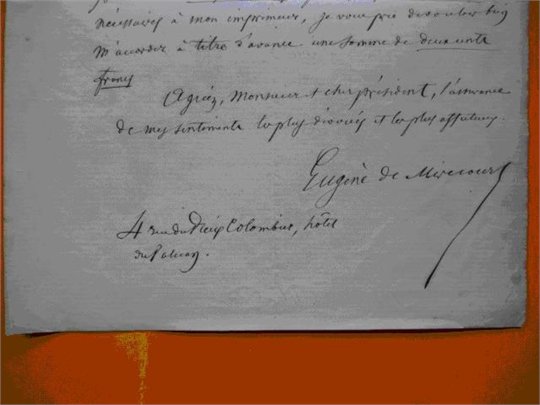 nécessaires à mon imprimeur, je vous prie de vouloir bien
m'accorder à titre d'avance une somme de deux cents
francs
Agréez, Monsieur et cher président, l'assurance
de mes sentiments les plus dévoués et les plus affectueux.
Eugène de Mirecourt
4 rue du Vieux Colombier, hôtel
du